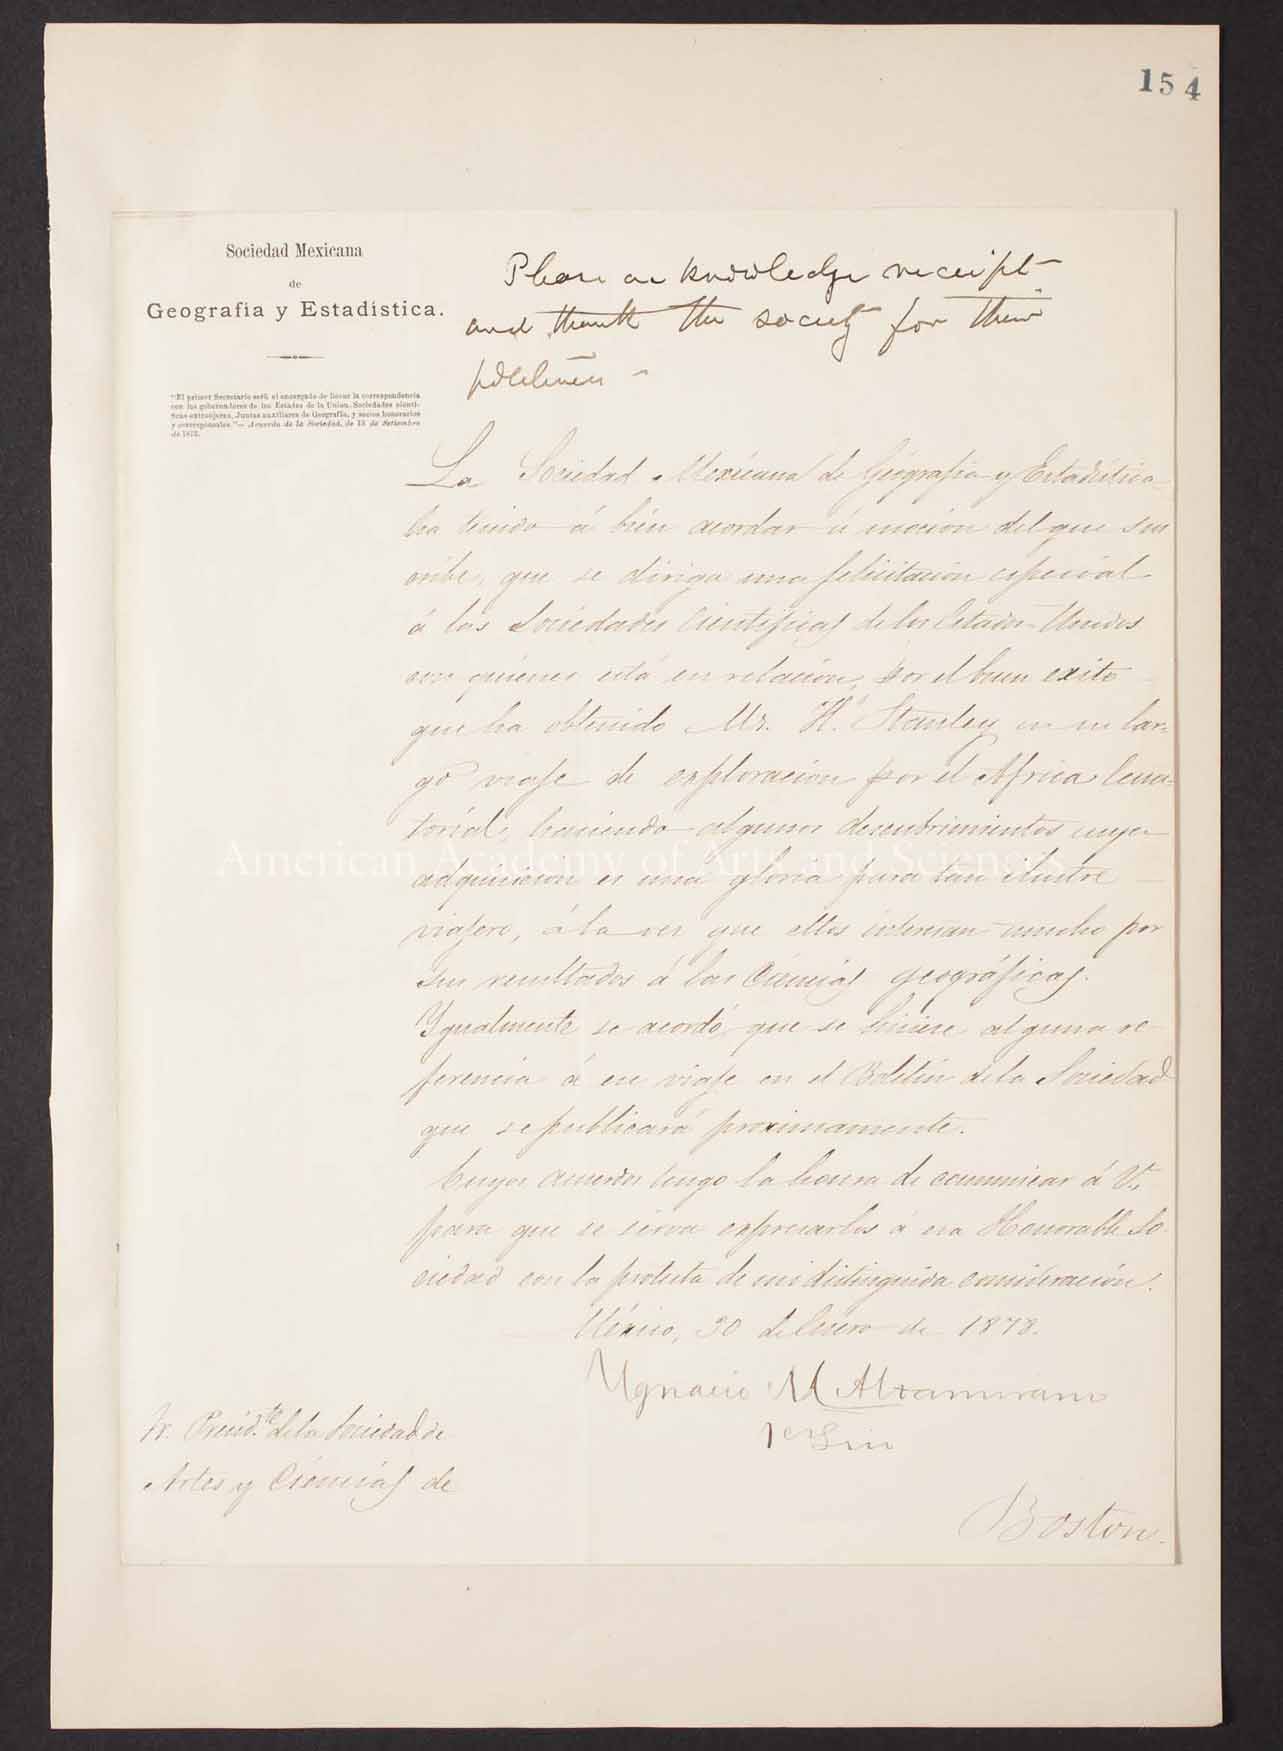 154
Sociedad Mexicana
de
Geografía y Estadística.
"El primer Secretario será el encargado de llevar la correspondencia
con los gobernadores de los Estados de la Union, Sociedades cientí-
ficas extranjeras, Juntas auxiliares de Geografía, y socios honorarios
y corresponsales."— Acuerdo de la Sociedad, de 13 de Setiembre
de 1872.
Please acknowledge receipt
and thank the society for their
La Sociedad Mexicana de Geografía y Estadística
ha tenido á bién acordar á mocion del que sus
cribe, que se dirija una felicitacion especial
á las Sociedades Cientificas de los Estados Unidos
con quiénes está en relacion, por el buen exito
que ha obtenido Mr. "H." Stanley en su lar-
go viaje de exploracion por el Africa Ecua-
torial, haciendo algunos descubrimientos cuya
adquisicion es una gloria para tan ilustre
viajero, á la vez que ellos interesan mucho por
sus resultados á las Ciencias geográficas.
Ygualmente se acordó que se hiciese alguna re
ferencia á ese viaje en el Boletin de la Sociedad
que se publicará proximamente.
Cuyos acuerdos tengo la honra de comunicar á V.,
para que se sirva expresarlos á esa Honorable So
ciedad con la protesta de mi distinguida consideracion.
México, 30 de Enero de 1878.
Ygnacio M Altamirano
1er Srio
Sr. Presid.te de la Sociedad de
Artes y Ciencias de
Boston.
American Academy of Arts and Sciences